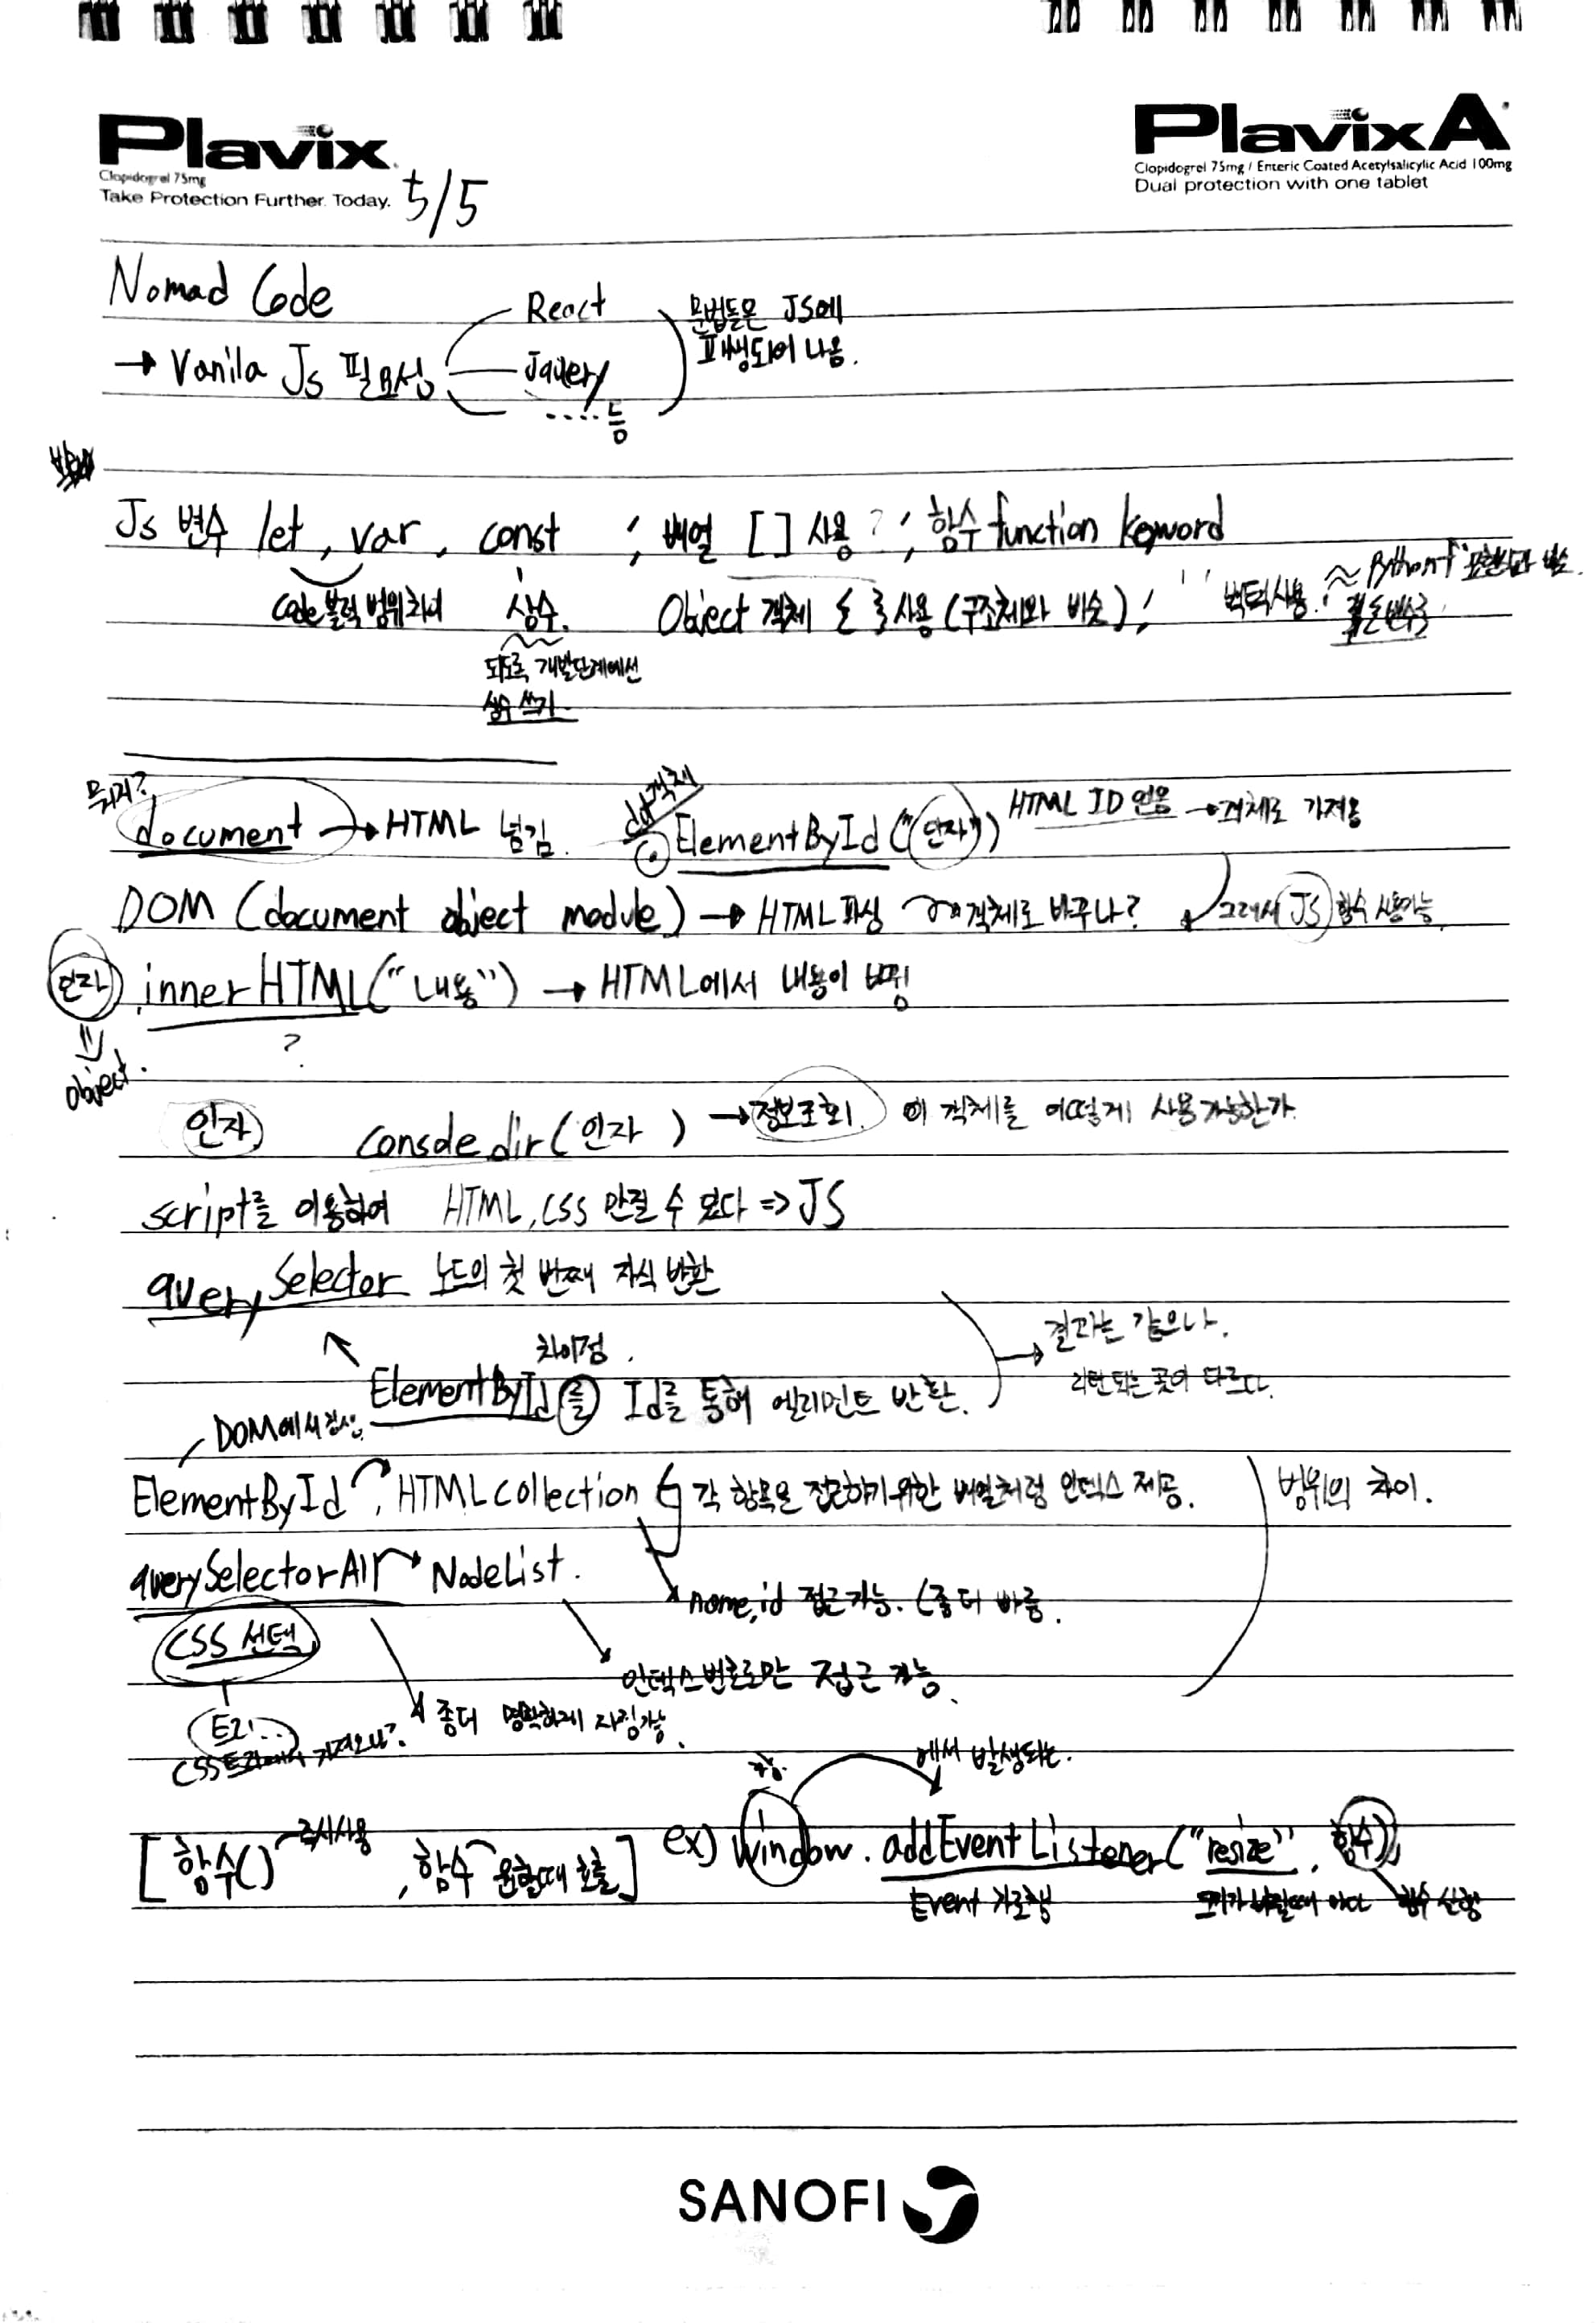 Plavix
Clopidogrel 75mg
Take Protection Further. Today.
PlavixA
Clopidogrel 75mg / Enteric Coated Acetylsalicylic Acid 100mg
Dual protection with one tablet
5/5
Nomad Code
→ Vanila Js 필요성
React
Jquery
.... 등
문법들은 JS에
파생되어 나옴.
Js 변수 let, var, const ; 배열 [ ] 사용 ?, 함수 function keyword
code 블럭 범위차이
상수.
되도록 개발단계에선
상수 쓰기
Object 객체 { } 사용 (구조체와 비슷);
` ` 백틱사용. ≈ Python f
뭐지?
document → HTML 넘김.
객체
ElementById ("인자") HTML ID 얻음 → 객체로 가져옴
DOM (document object module) → HTML 파싱 객체로 바꾸나?
그래서 JS 함수 사용가능.
인자 .innerHTML("내용") → HTML에서 내용이 바뀜
?
object.
인자 console.dir(인자) → 정보조회. 이 객체를 어떻게 사용가능한가.
script를 이용하여 HTML, CSS 만질 수 있다 => JS
querySelector 노드의 첫 번째 자식 반환
차이점.
ElementById를 Id를 통해 엘리먼트 반환.
결과는 같으나.
리턴되는 곳이 다르다.
DOM에서 검색.
ElementById, HTMLcollection 각 항목을 접근하기 위한 배열처럼 인덱스 제공.
범위의 차이.
querySelectorAll → NodeList.
name, id 접근가능. (좀 더 빠름.
CSS 선택
인덱스번호로만 접근 가능.
트리...
좀더 명확하게 지정가능.
CSS트리에서 가져오나?
에서 발생되는.
[ 함수() 즉시사용 , 함수 원할때 호출 ] ex) window.addEventListener("resize", 함수);
Event
크기가 바뀔때 마다
함수 실행
SANOFI